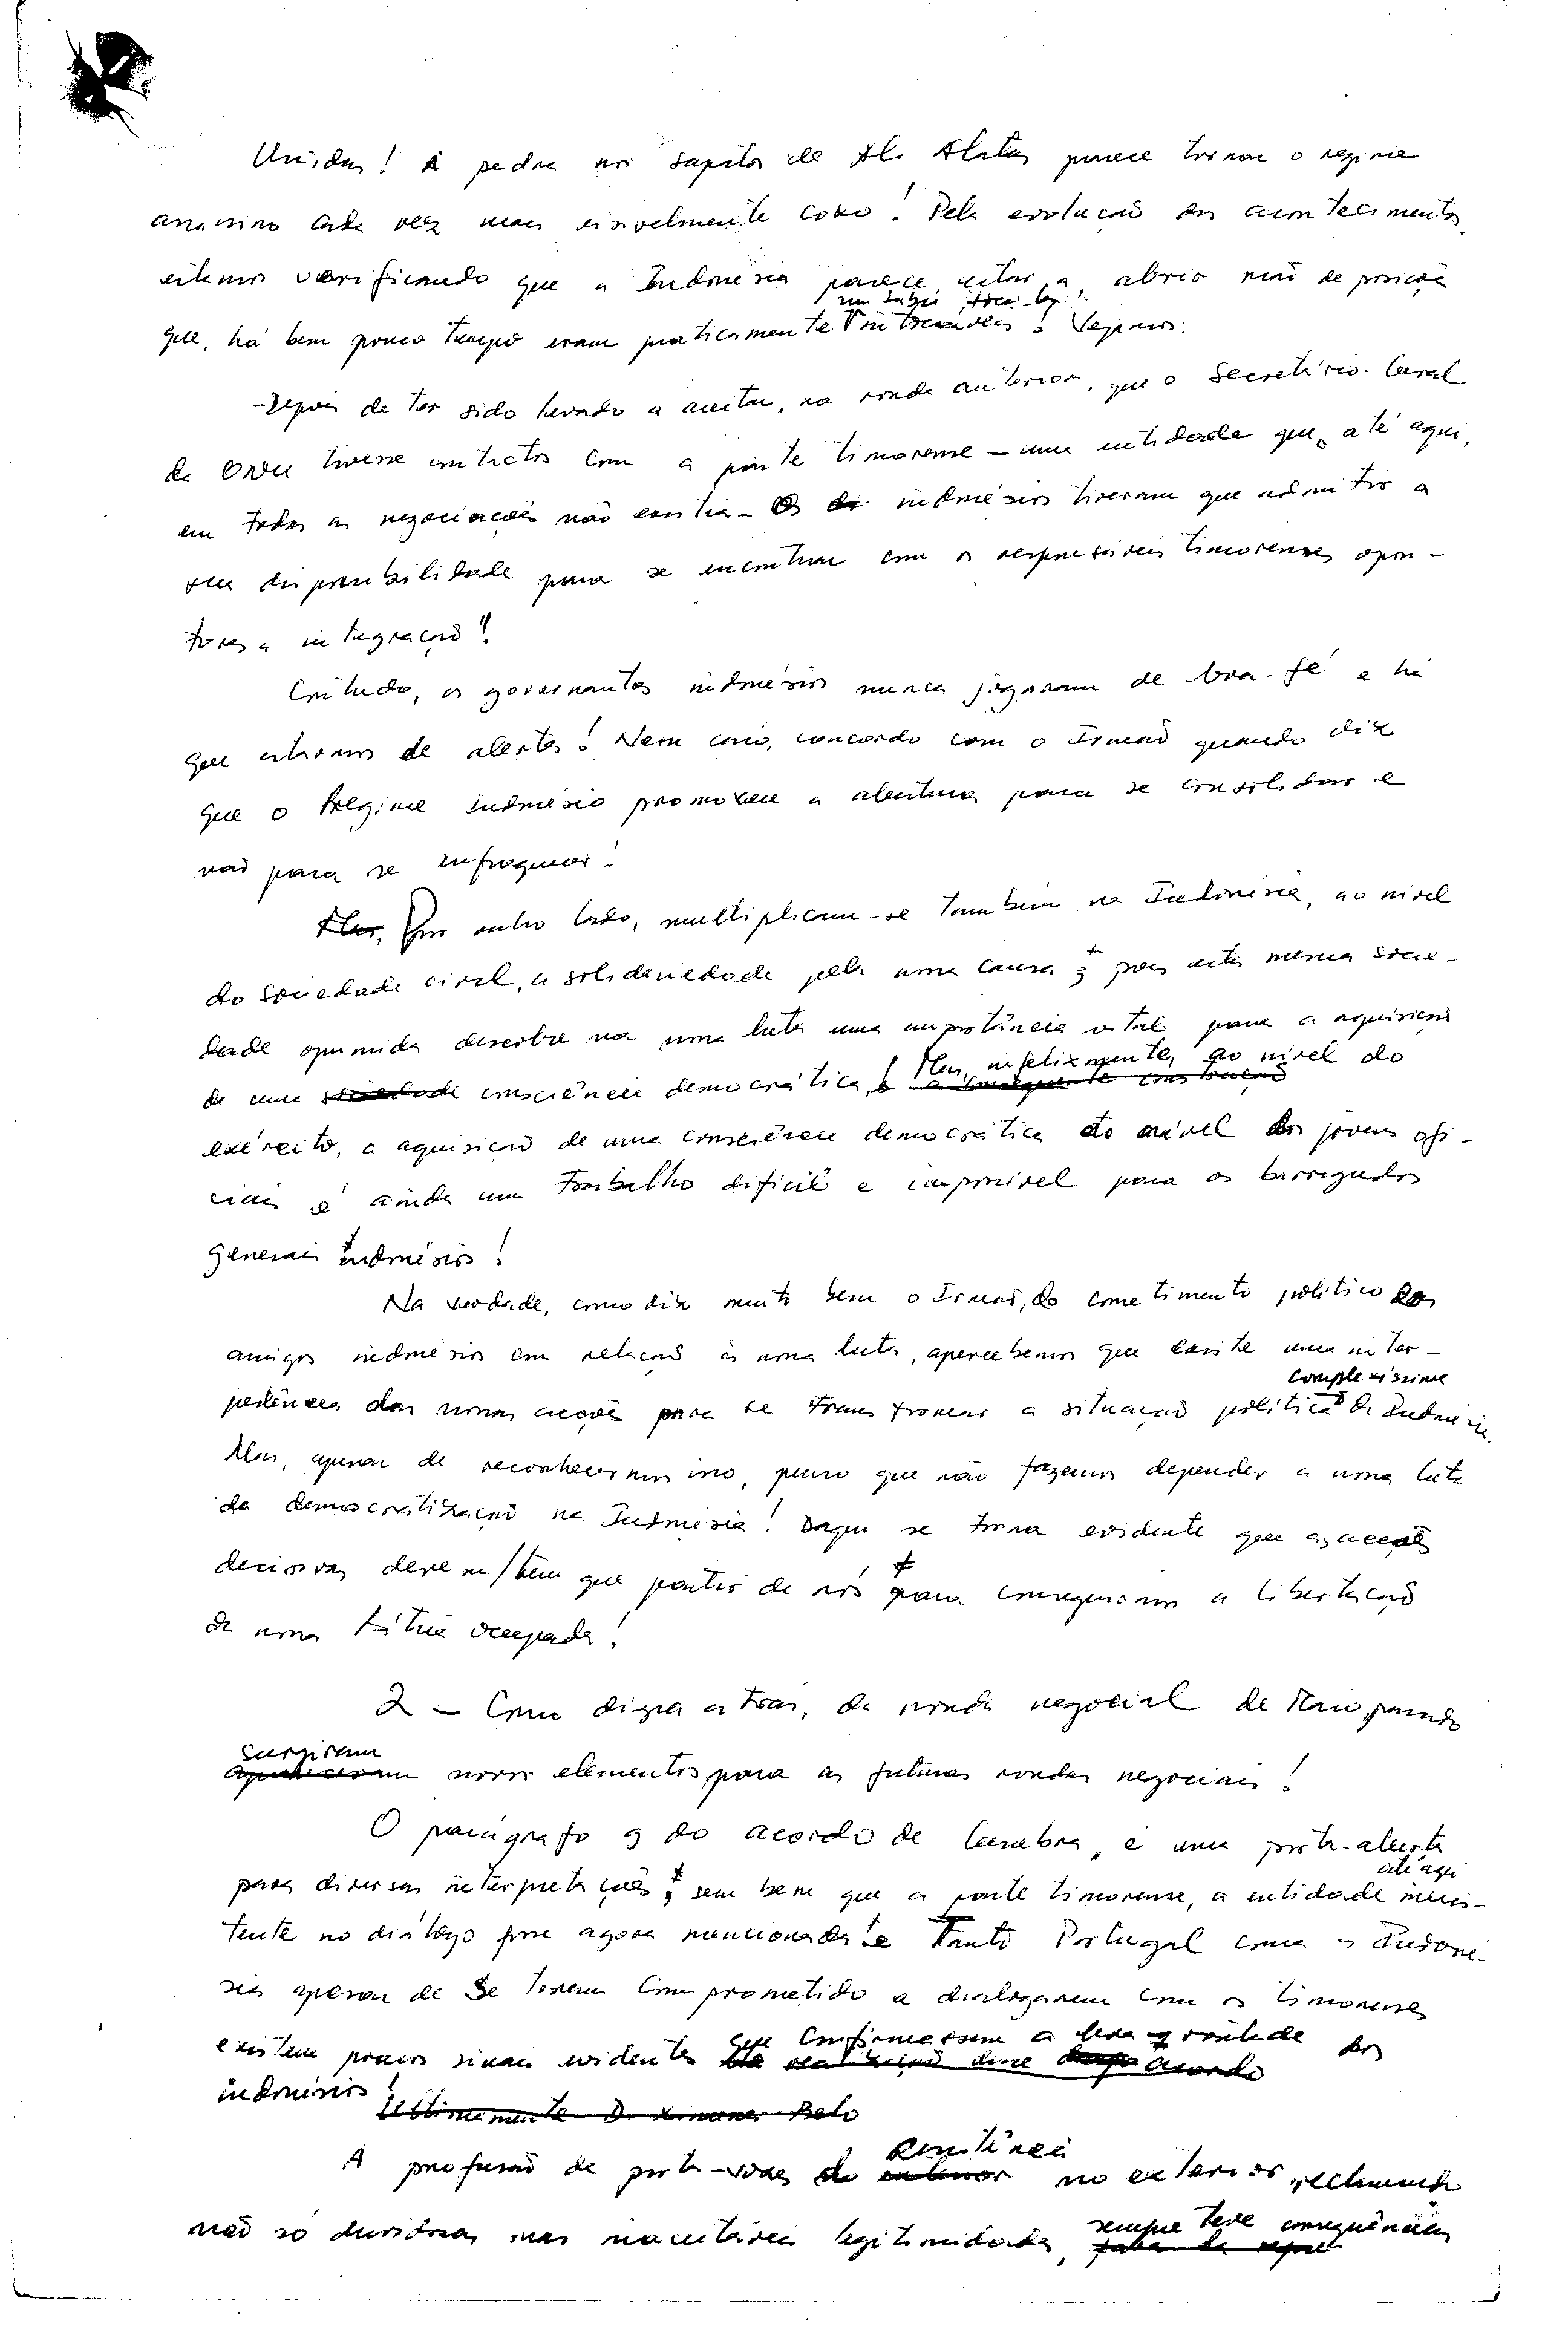 Unidas! A pedra nos sapatos de Ali Alatas parece tornar o regime
assassino cada vez mais visivelmente coxo! Pela evolução dos acontecimentos,
estamos verificando que a Indonésia parece estar a abrir mão de posições
que, há bem pouco tempo eram praticamente intocáveis! Vejamos:
- Depois de ter sido levado a aceitar, na ronda anterior, que o Secretário-Geral
da ONU tivesse contactos com a parte timorense - uma entidade que, até aqui,
em todas as negociações não existia - Os indonésios tiveram que admitir a
sua disponibilidade para se encontrar com os responsáveis timorenses opos-
tores a integração"!
Contudo, os governantes indonésios nunca jogaram de boa-fé e há
que estarmos de alertas! Nem caso, concordo com o Irmão quando diz
que o Regime Indonésio promoveu a abertura para se consolidar e
não para se enfraquecer!
Mas, Por outro lado, multiplicam-se também na Indonésia, ao nível
da sociedade civil, a solidariedade pela nossa causa pois esta mesma socie-
dade oprimida descobre na nossa luta uma importância vital para a aquisição
de uma sociedade consciência democrática! Mas, infelizmente, ao nível do
a consequente construção
exército, a aquisição de uma consciência democrática ao nível dos jovens ofi-
ciais é ainda um trabalho difícil e impossível para os barrigudos
generais indonésios!
Na verdade, como diz muito bem o Irmão, do cometimento político dos
amigos indonésios em relação à nossa luta, apercebemos que existe uma inter-
complexíssima
pedência das nossas acções para se transformar a situação política da Indonésia.
Mas, apesar de reconhecermos isso, penso que não fazemos depender a nossa luta
da democratização na Indonésia! Daqui se torna evidente que as acções
decisivas devem/têm que partir de nós para conseguirmos a libertação
da nossa Pátria ocupada!
2 - Como dizia atrás, da ronda negocial de Maio passado
surgiram
apareceram novos elementos para as futuras rondas negociais!
O parágrafo 9 do acordo de Genebra, é uma porta-aberta
até aqui
para diversas interpretações, sem bem que a parte timorense, a entidade inexis-
tente no diálogo fosse agora mencionada! e Tanto Portugal como a Indoné-
sia apesar de se terem comprometido a dialogarem com os timorenses
existem poucos sinais evidentes que confirmassem a boa-vontade dos
acordo
indonésios!
Ultimamente D. Ximenes Belo
Resistência
A profusão de porta-vozes da exterior no exterior, reclamando
não só duvidosas mas inaceitáveis legitimidades, sempre teve consequências